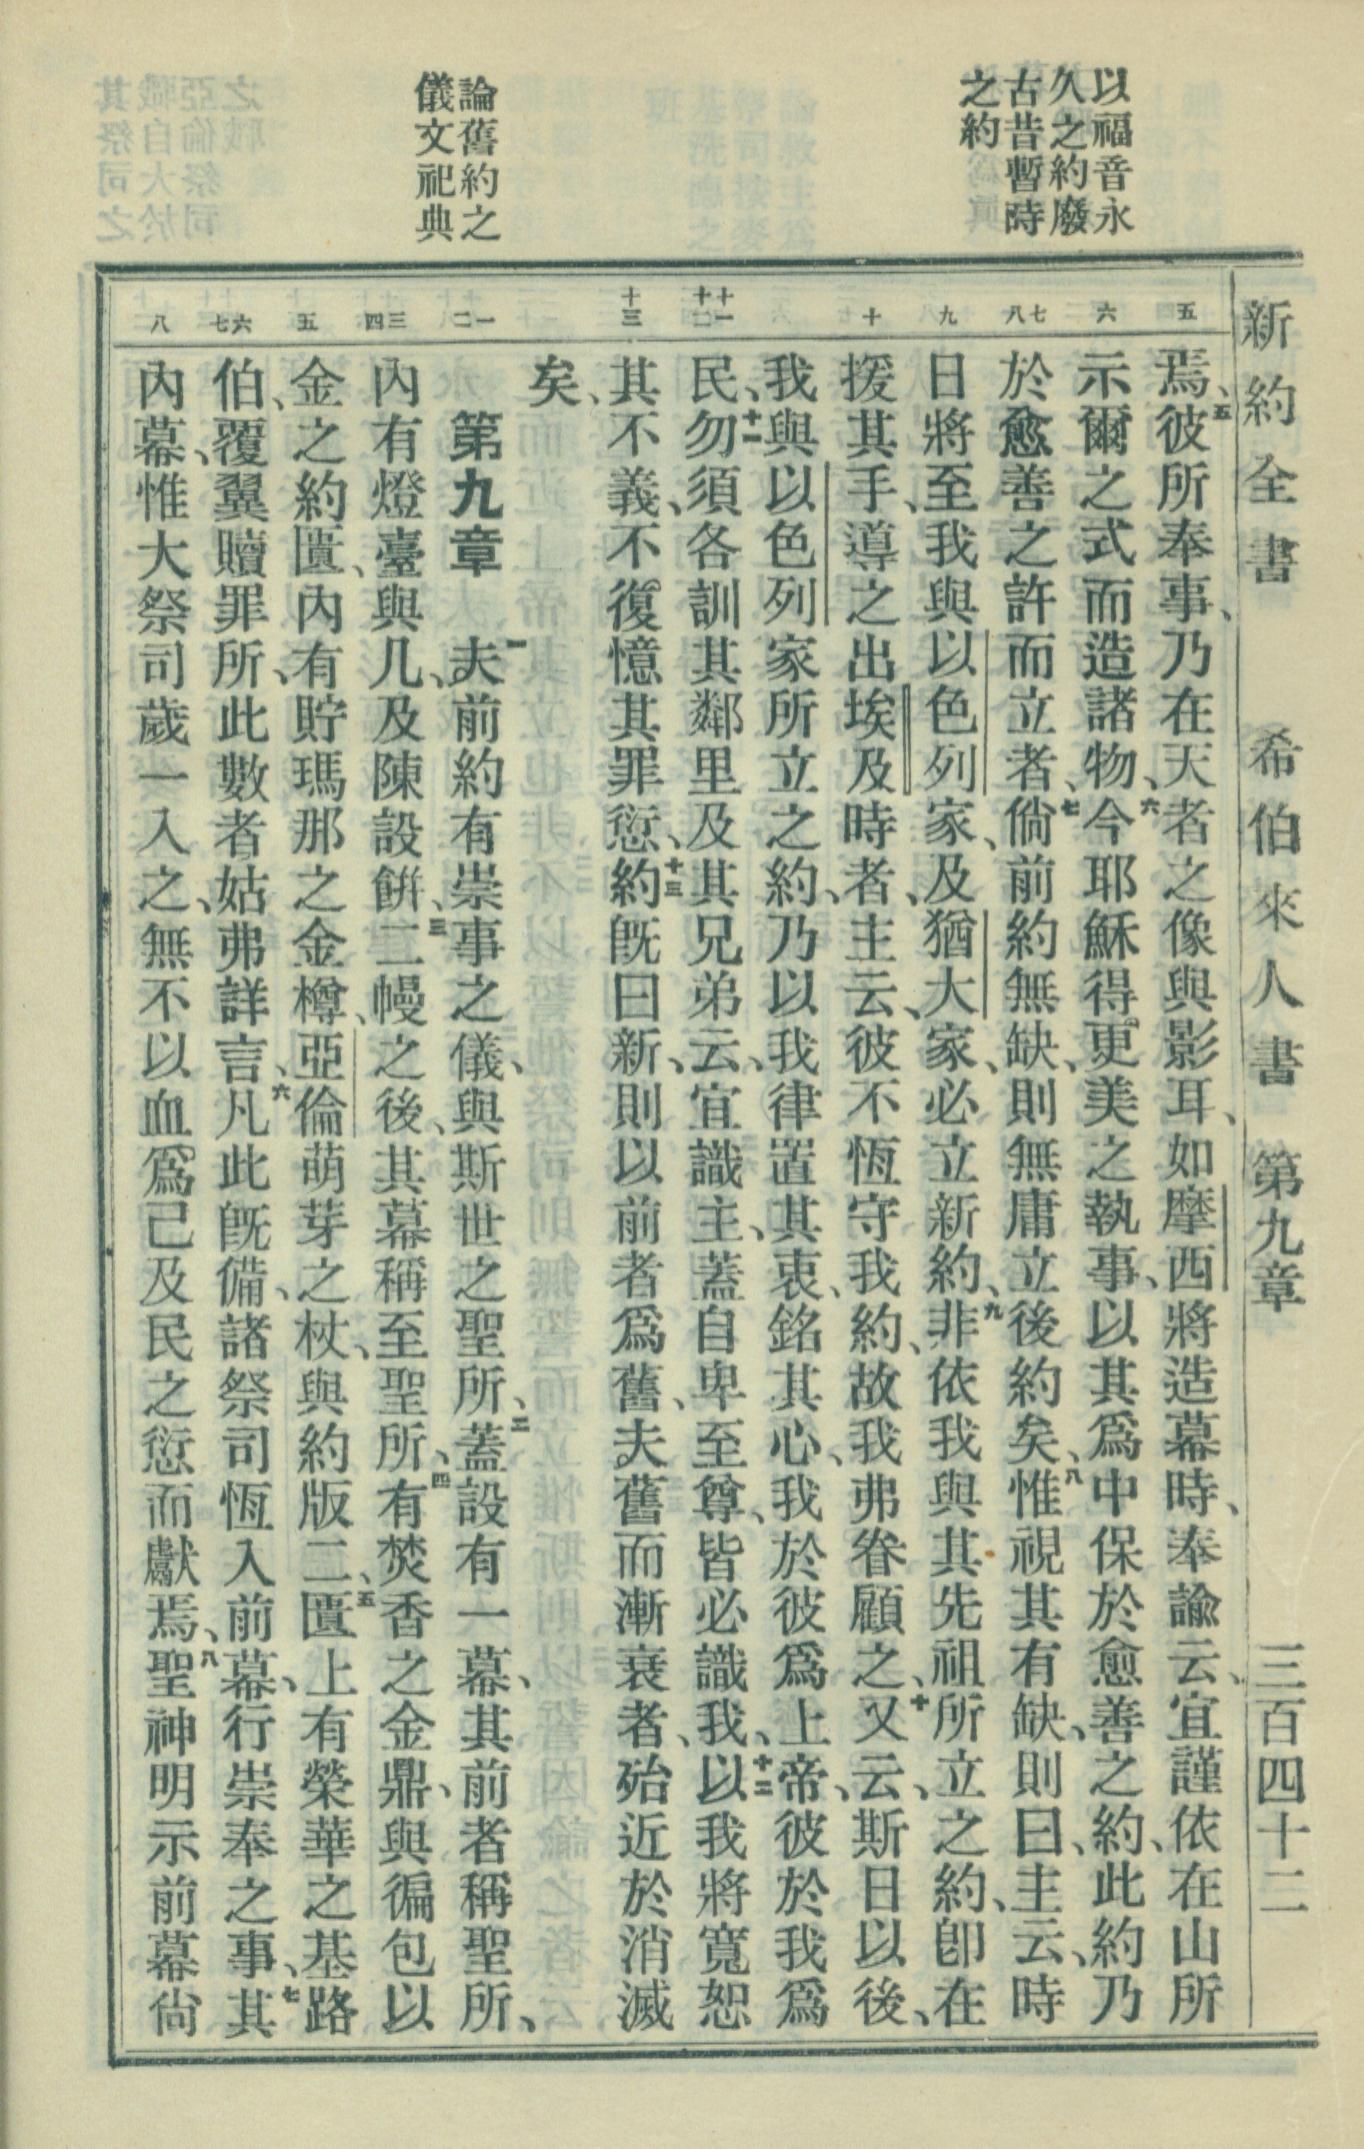 新約全書 希伯來人書 第九章 三百四十二
以福音永
久之約廢
古昔暫時
之約
論舊約之
儀文祀典
五
六
七八
九
十
十一十二
十三
一二
三四
五
六七
八
焉、五彼所奉事、乃在天者之像與影耳、如摩西將造幕時、奉諭云、宜謹依在山所
示爾之式而造諸物、六今耶穌得更美之執事、以其爲中保於愈善之約、此約乃
於愈善之許而立者、七倘前約無缺、則無庸立後約矣、八惟視其有缺、則曰、主云、時
日將至我與以色列家、及猶大家、必立新約、九非依我與其先祖所立之約、卽在
援其手、導之出埃及時者、主云、彼不恆守我約、故我弗眷顧之、十又云、斯日以後、
我與以色列家所立之約、乃以我律置其衷、銘其心、我於彼爲上帝、彼於我爲
民、十一勿須各訓其鄰里及其兄弟云、宜識主、蓋自卑至尊、皆必識我、十二以我將寬恕
其不義、不復憶其罪愆、十三約旣曰新、則以前者爲舊、夫舊而漸衰者、殆近於消滅
矣、
第九章 一夫前約有崇事之儀、與斯世之聖所、二蓋設有一幕、其前者稱聖所、
內有燈臺與几、及陳設餅、三二幔之後、其幕稱至聖所、四有焚香之金鼎、與徧包以
金之約匱、內有貯瑪那之金樽、亞倫萌芽之杖、與約版二、五匱上有榮華之基路
伯、覆翼贖罪所、此數者、姑弗詳言、六凡此旣備、諸祭司恆入前幕、行崇奉之事、七其
內幕、惟大祭司歲一入之、無不以血、爲己及民之愆而獻焉、八聖神明示前幕尙